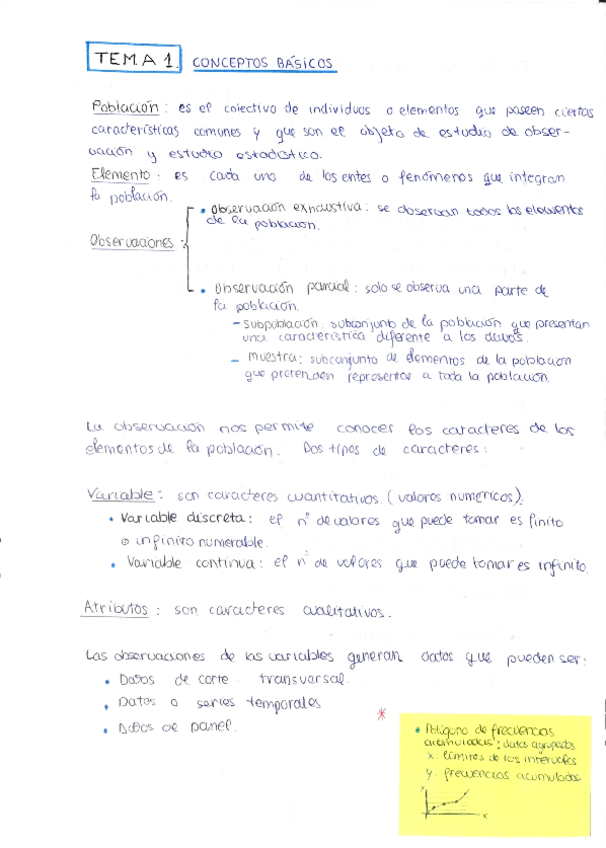 TEMA 1. CONCEPTOS BÁSICOS
Población: es el colectivo de individuos o elementos que poseen ciertas
características comunes y que son el objeto de estudio de obser-
vación y estudio estadístico.
Elemento: es cada uno de los entes o fenómenos que integran
la población.
Observaciones:
• Observación exhaustiva: se observan todos los elementos
de la población.
• Observación parcial: solo se observa una parte de
la población.
- Subpoblación: subconjunto de la población que presentan
una característica diferente a los demás.
- Muestra: subconjunto de elementos de la población
que pretenden representar a toda la población.
La observación nos permite conocer los caracteres de los
elementos de la población. Dos tipos de caracteres:
Variable: son caracteres cuantitativos. (valores numéricos).
• Variable discreta: el nº de valores que puede tomar es finito
o infinito numerable.
• Variable continua: el nº de valores que puede tomar es infinito.
Atributos: son caracteres cualitativos.
Las observaciones de las variables generan datos que pueden ser:
• Datos de corte transversal.
• Datos o series temporales
• Datos de panel.
*
• Polígono de frecuencias
acumuladas: datos agrupados
x: límites de los intervalos
y: frecuencias acumuladas
y
x